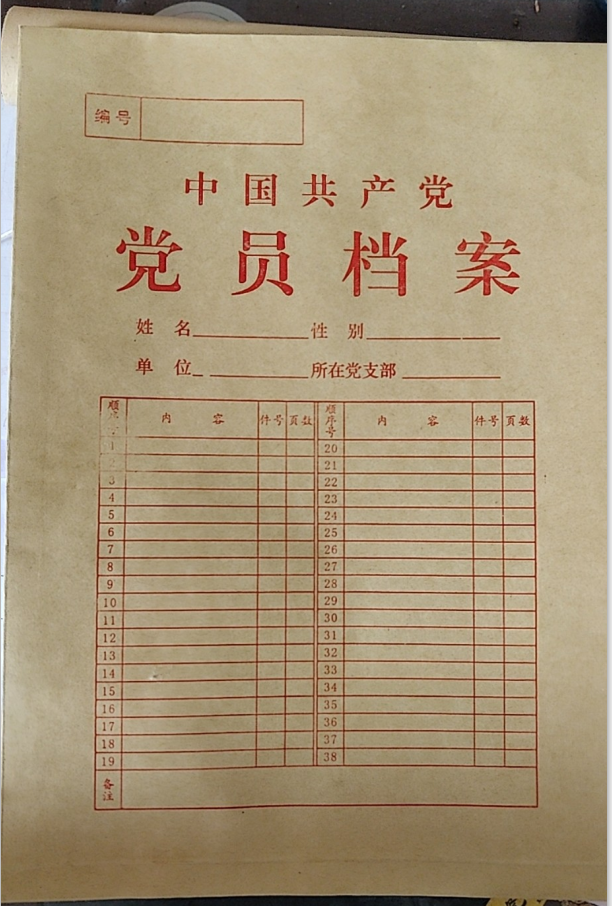 编号
中国共产党
党员档案
姓名 性别
单位 所在党支部
顺序 内容 件号 页数 顺序号 内容 件号 页数
1 20
21
3 22
4 23
5 24
6 25
7 26
8 27
9 28
10 29
11 30
12 31
13 32
14 33
15 34
16 35
17 36
18 37
19 38
备注